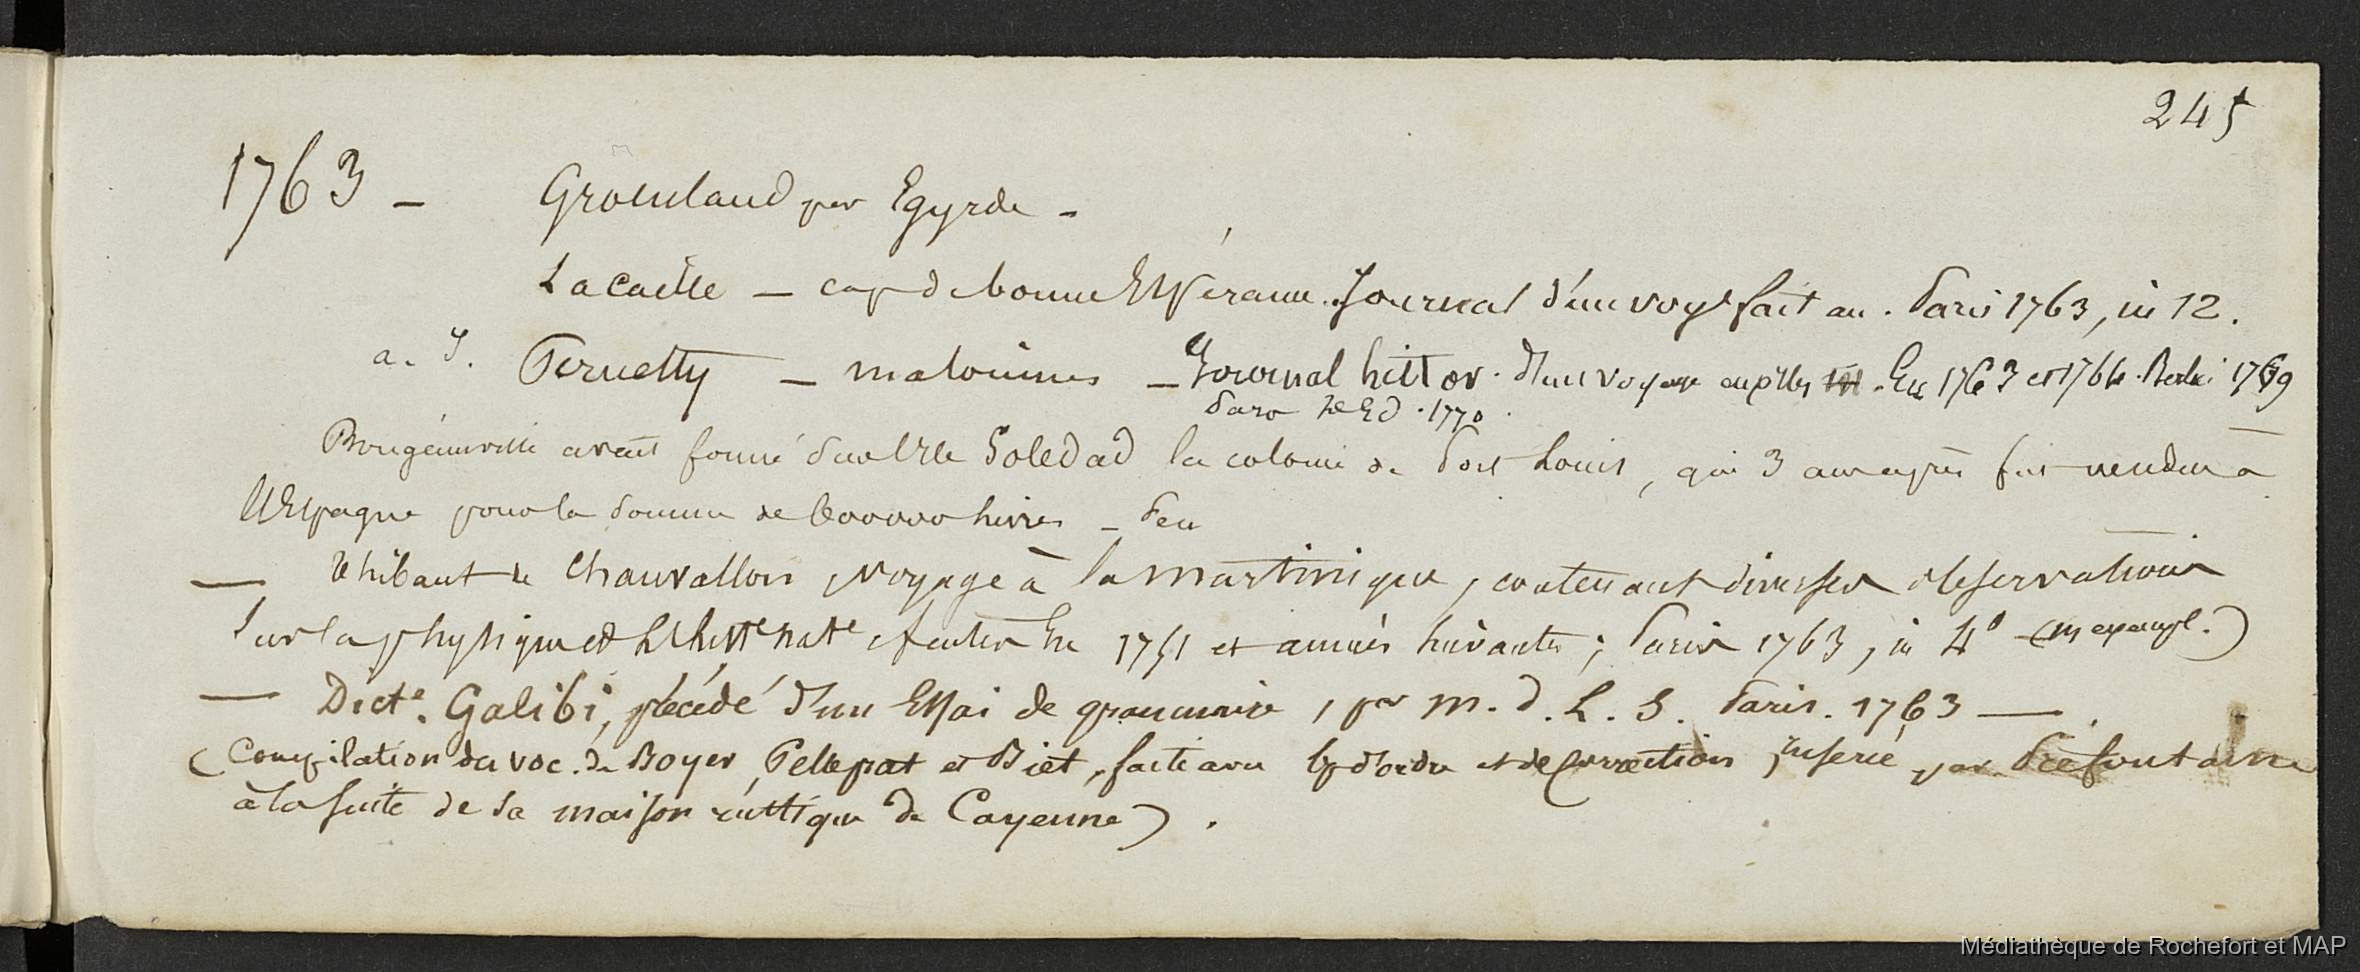 245
1763 - Groenland par Egyrde -
Lacaille - cap de bonne Espérance. Journal d'un voyge fait au . Paris 1763, in 12.
a. J. Pernetty - malouines - Journal histor. d'un voyage aux iles . En 1763 et 1764. Berlin 1769
Paris 2e Ed . 1770 .
Bougainville avait formé sur l'Ile Soledad la colonie de Port Louis, qui 3 ans après fut vendue à
l'Espagne pour la somme de livres -
— Thibaut de Chanvallon, Voyage à la Martinique, contenant diverses observations
sur la physique et l'histre nate faites En 1751 et années suivantes ; Paris 1763, in 4° - (m exempl.)
— Dicte. Galibi, précédé d'un Essai de grammaire, par M. D. L. S. Paris. 1763 — .
(Compilation du voc. de Boyer, Pelleprat et Biet, faite avec d'ordre et de correction, inserée par Préfontaine
à la suite de sa maison rustique de Cayenne) .
Médiathèque de Rochefort et MAP